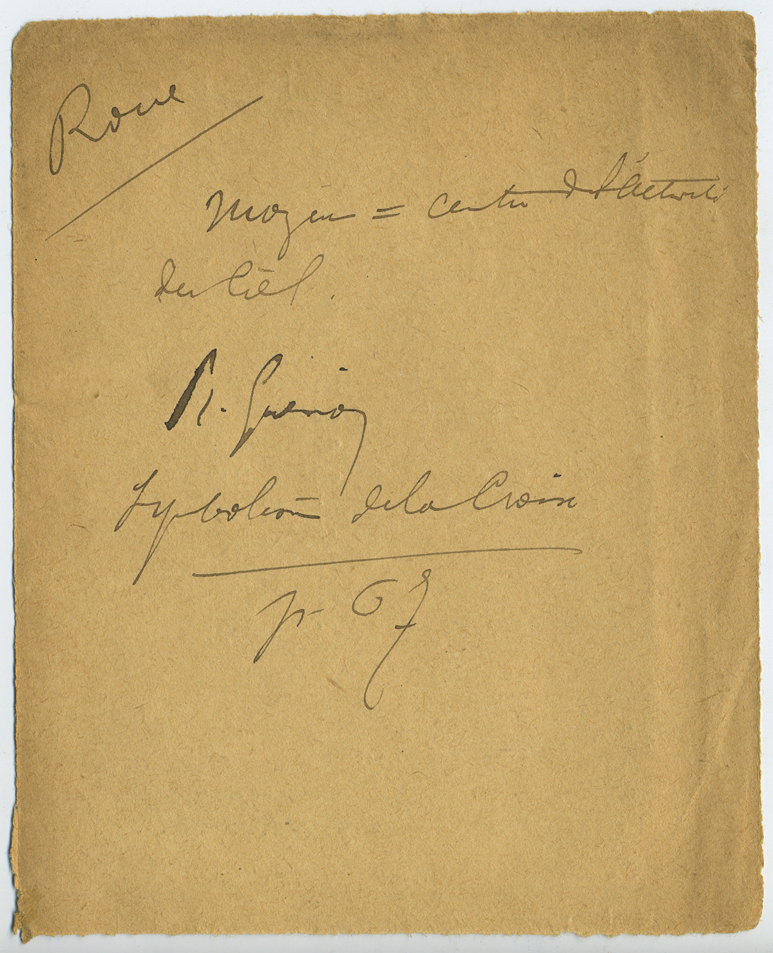 Roue
Moyeu = centre de l'activité
du Ciel.
R. Guénon
Symbolisme de la Croix
p. 67